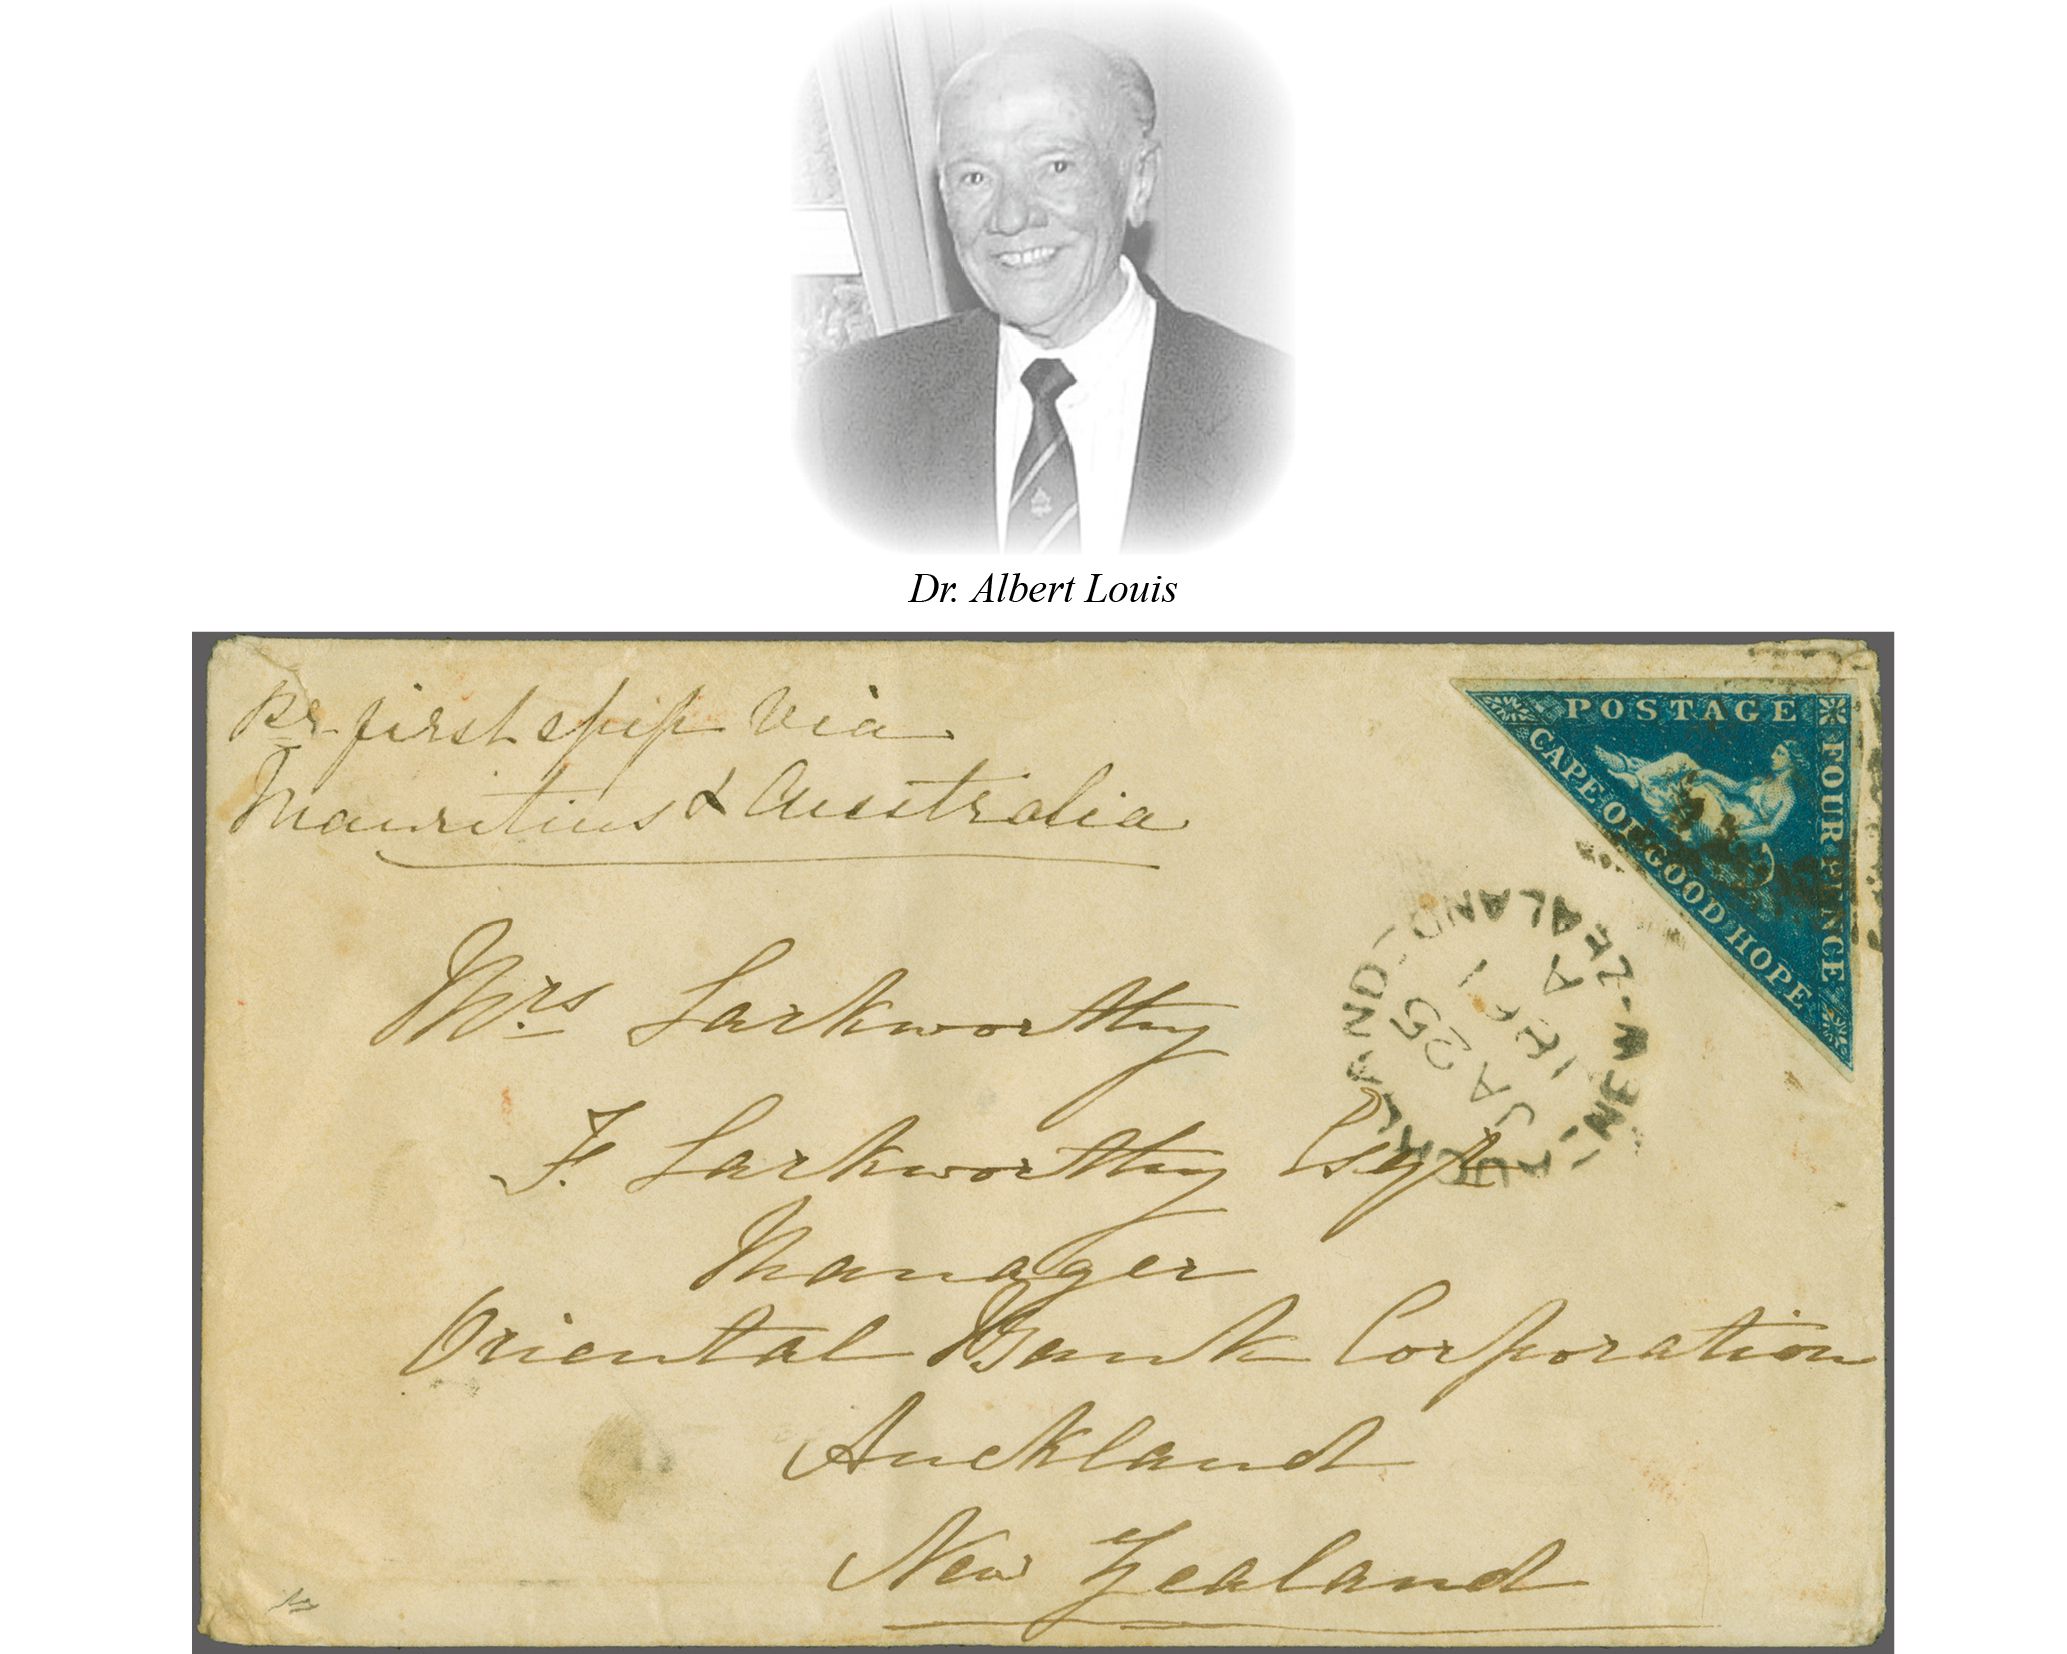 Dr. Albert Louis
Pr first ship Via
Mauritius & Australia
POSTAGE
FOUR PENCE
CAPE OF GOOD HOPE
AUCKLAND - NEW-ZEALAND
JA 25
A
Mrs Larkworthy
F. Larkworthy Esqr
Manager
Oriental Bank Corporation
Auckland
New Zealand